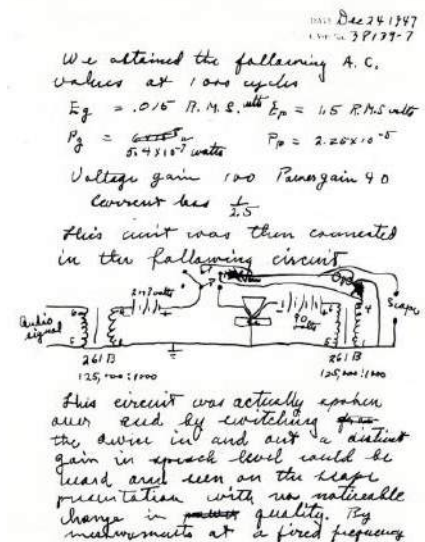 DATE Dec 24 1947
CASE No. 38139-7
We obtained the following A.C.
values at 1000 cycles
Eg = .015 R.M.S. volts Ep = 1.5 R.M.S volts
Pg = 5.4 x 10⁻⁷ watts Pp = 2.25 x 10⁻⁵
Voltage gain 100 Power gain 40
Current loss 1/2.5
This unit was then connected
in the following circuit
Audio signal
261 B
125,000:1000
90 volts
261 B
125,000:1000
Scope
This circuit was actually spoken
over and by switching
the device in and out a distinct
gain in speech level could be
heard and seen on the scope
presentation with no noticeable
change in quality. By
measurements at a fixed frequency